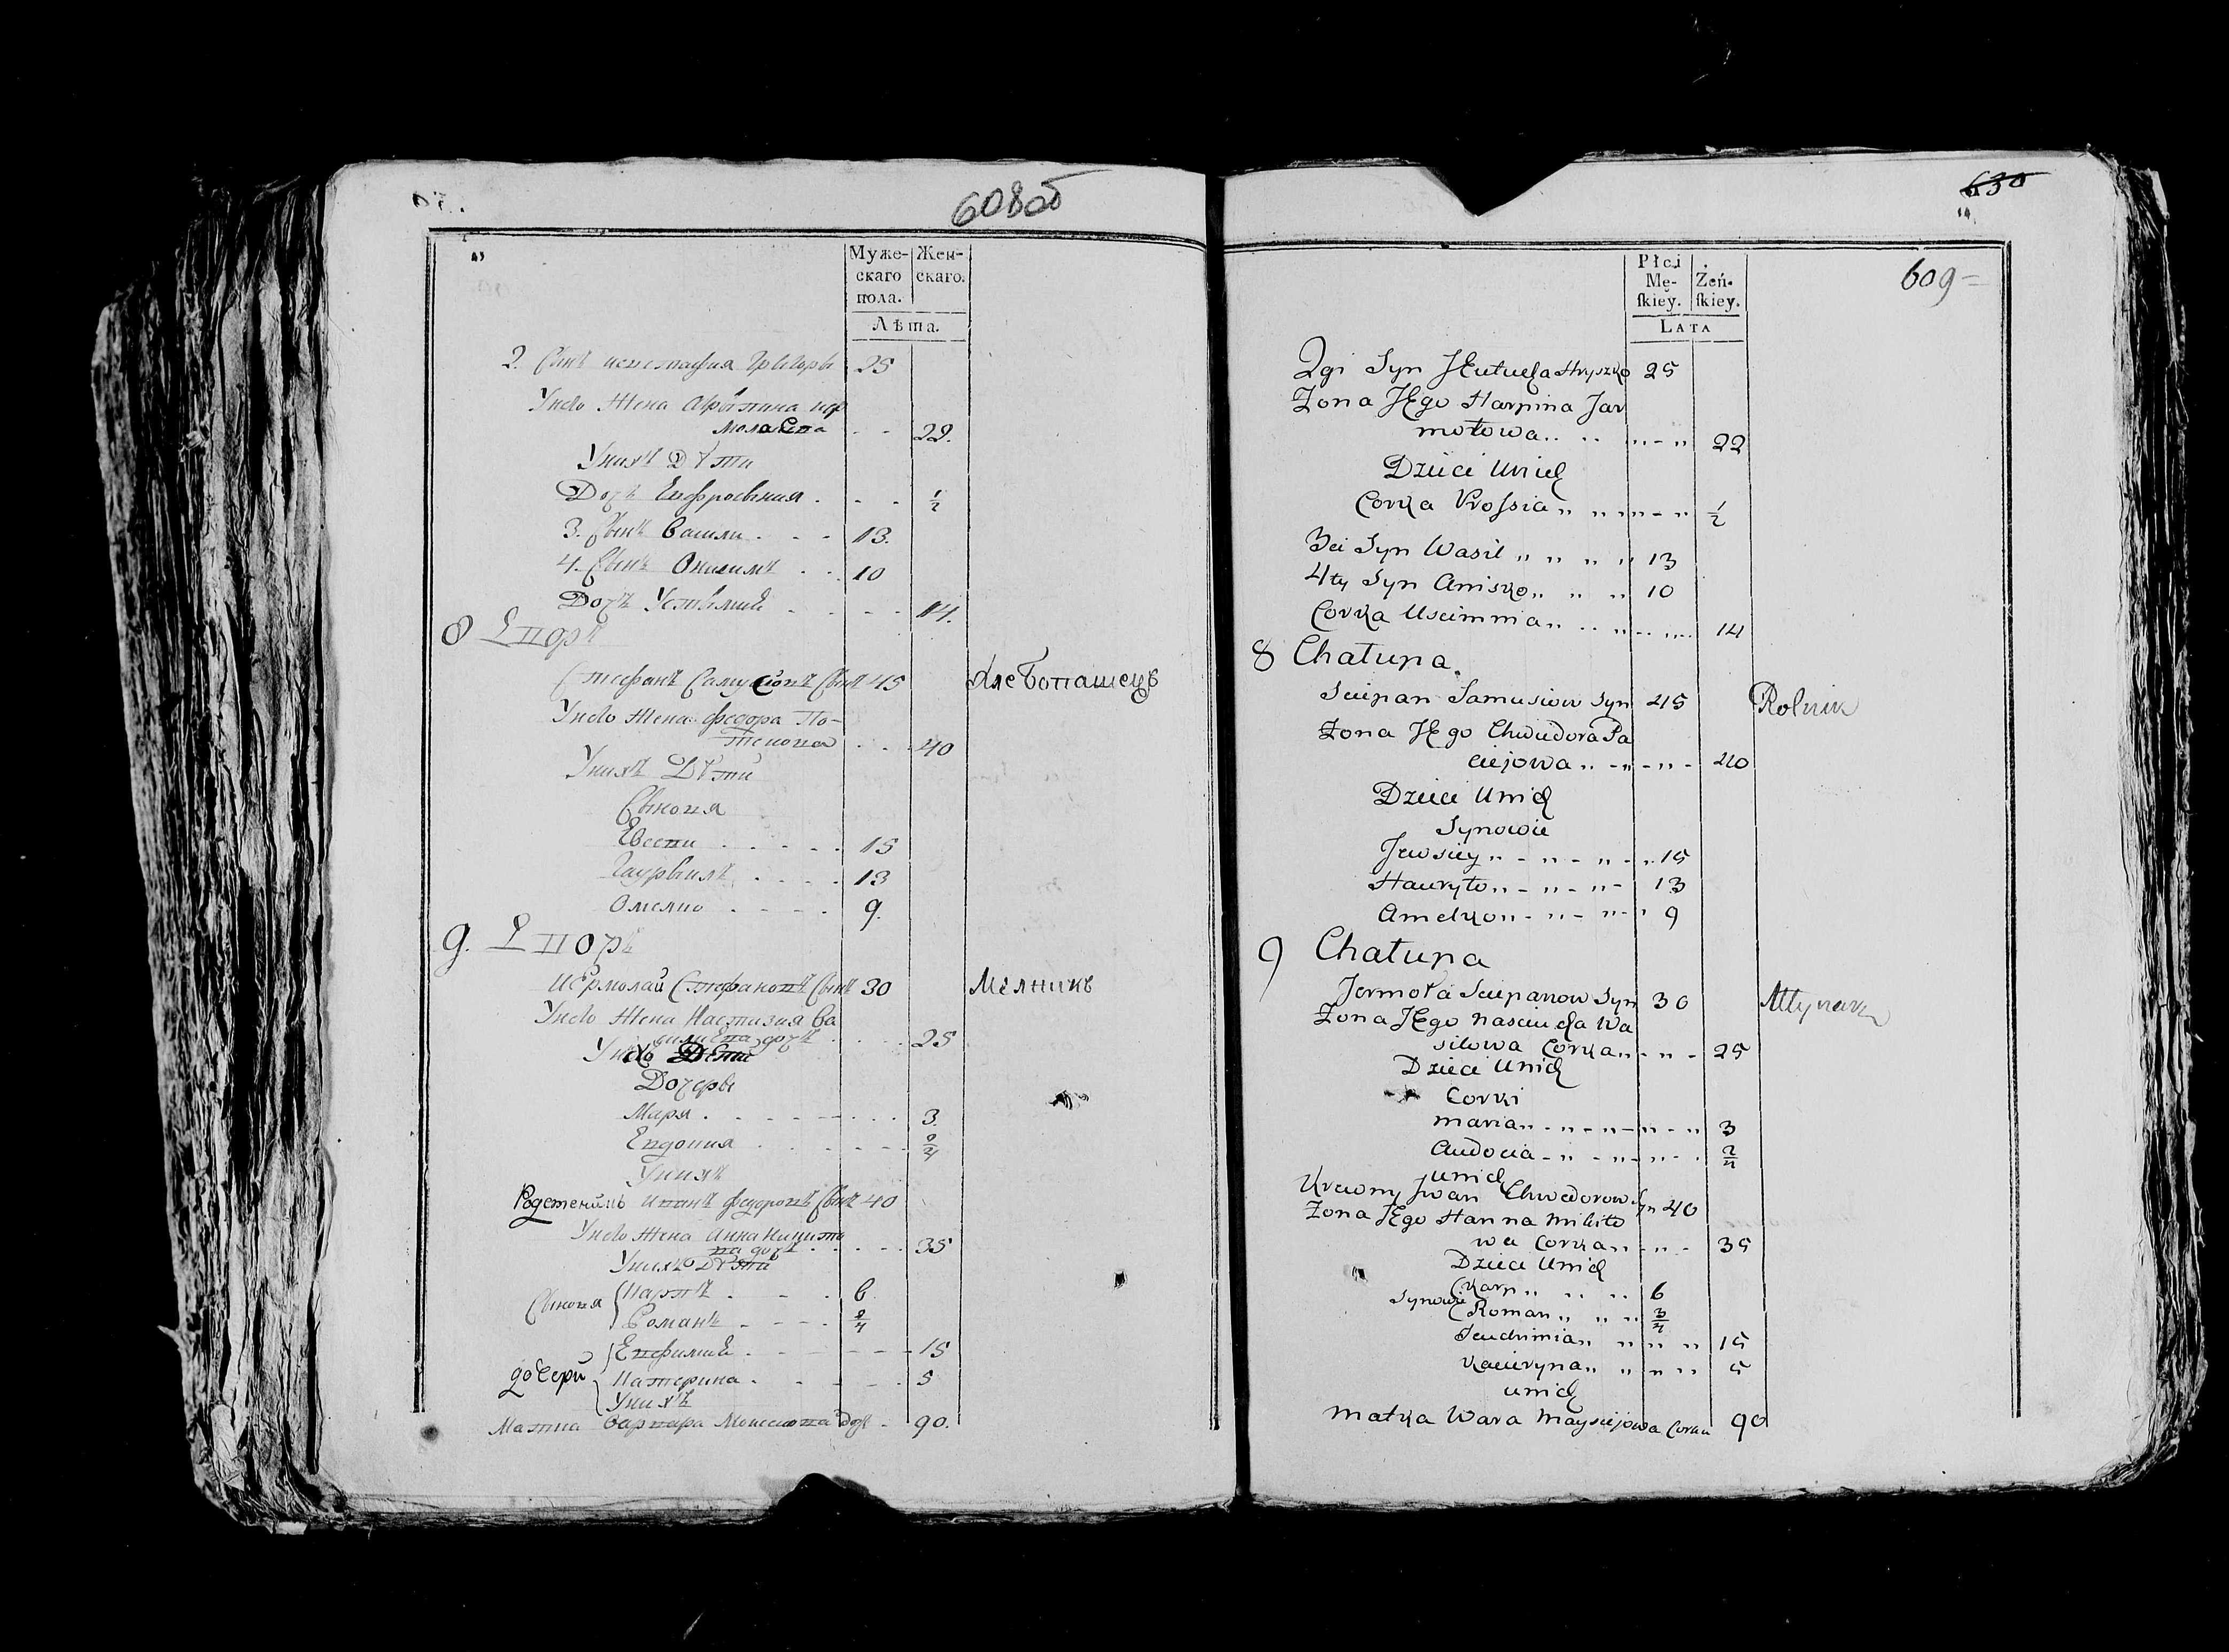 608об
Муже-
скаго
пола.
Жен-
скаго.
Лѣта.
2. Сынъ Григори 25
У нево Жена
22.
У нихъ Дѣти
Дочь Евфросиния . - - 1/2
3. Сынъ Васили . - - 13.
4. Сынъ Онисимъ . . 10
Дочь Устимия - - - - 14.
8 Дворъ
Стефанъ Самусіовъ Сынъ 45 Хлебопашецъ
У нево Жена Федора Па-
40
У нихъ Дѣти
Сыновя
Евсеи . . . . 15
Гаурвилъ . . . . 13
Омелко . - - . 9.
9. Дворъ
Иермолай Стефановъ Сынъ 30 Мелникъ
У нево Жена Настазия Ва
силева дочь . . . . 25
У нево Дети
Дочеры
Маря . - - - - - . . 3.
Евдокия . - - - -
У нихъ
Родственикъ Иванъ Федоровъ Сынъ 40
У нево Жена Анна Никито
ва дочь . . - - . 35
У нихъ Дѣти
Сыновя Карпъ . - - . 6.
Романъ - - - .
дочери Евфимия . - - - - 15
Катерина . - - - . 5
У нихъ
Матка Варвара Моисиова дочь - 90.
630
14
609
Płci
Mę-
ſkiey.
Żeń-
ſkiey.
Lata
2gi Syn Hryszko 25
Zona JEgo Harpina Jar
mołowa 22
Dzieci Unich
Corka Prossia 1/2
3ci Syn Wasil 13
4ty Syn Anisko 10
Corka Uscimnia 14
8 Chałupa
Sciepan Samusiow Syn 45 Rolnik
Zona JEgo Chwiedora Pa
ciejowa 40
Dzieci Unich
Synowie
Jewsiey 15
Hawryło 13
Amelko 9
9 Chałupa
Jermoła Sciepanow Syn 30 Młynarz
Zona JEgo Nasciucha Wa
silowa Corka 25
Dzieci Unich
Corki
Maria 3
Audocia
Unich
Krewny Jwan Chwedorow Syn 40
Zona JEgo Hanna Mikito
wa Corka 35
Dzieci Unich
Synowie Karp 6
Roman 3/4
Jeuchimia 15
Kacieryna 5
Unich
Matka Wara Maysiejowa Corka 90